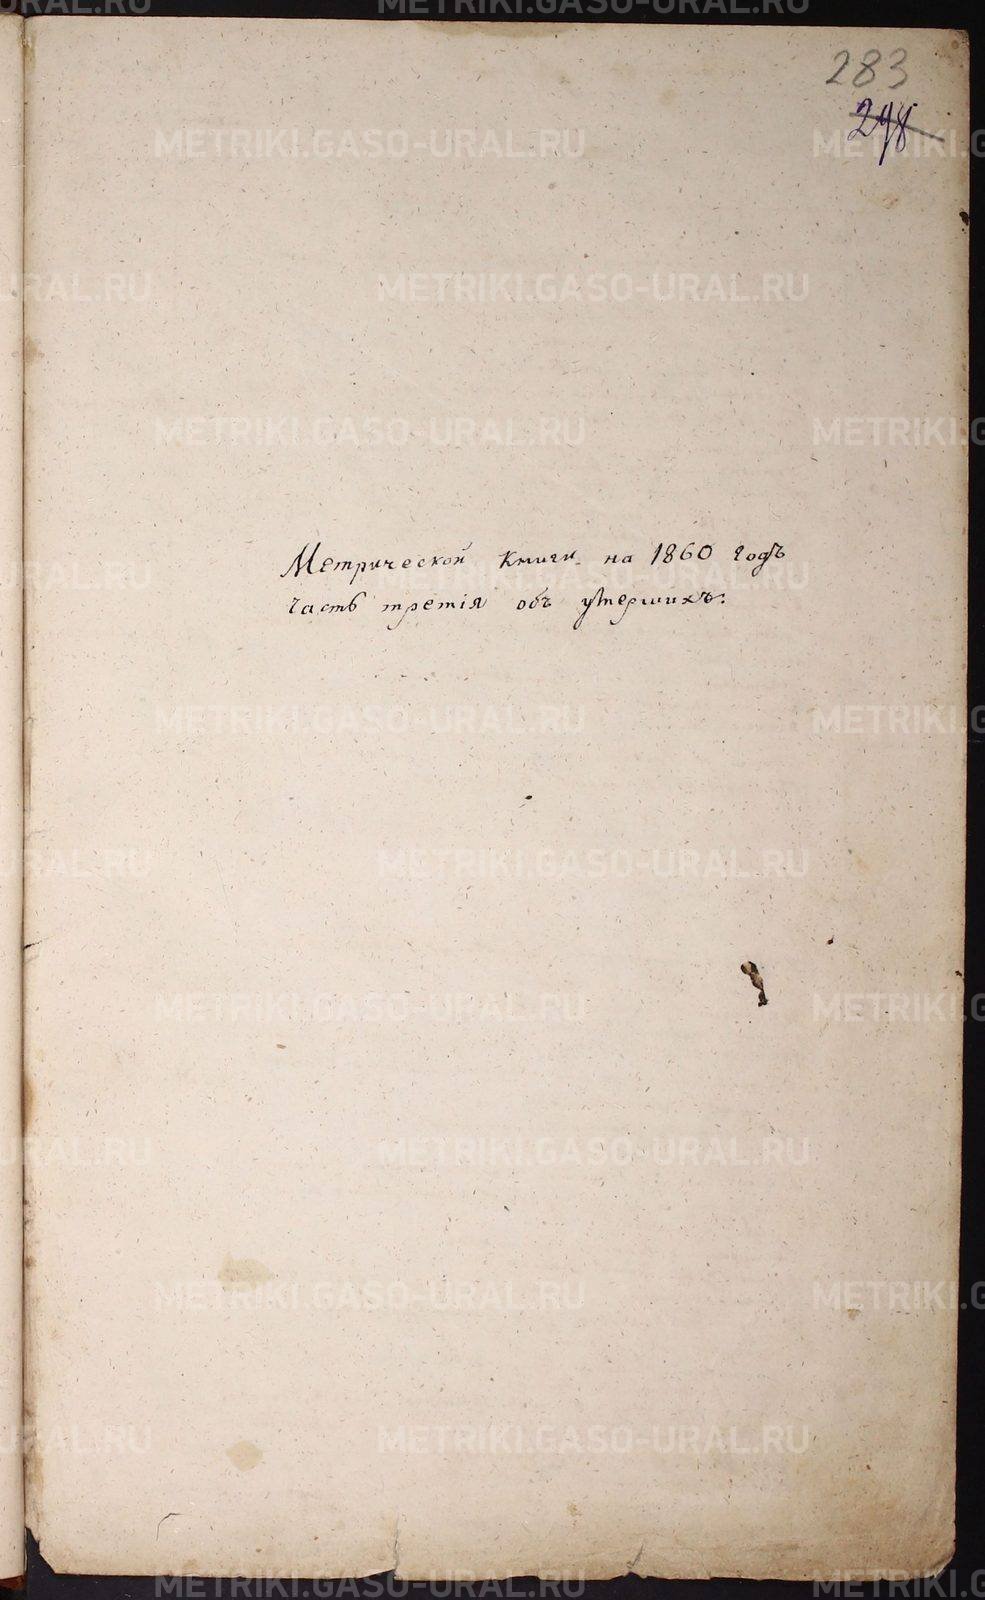 283
298
Метрической книги на 1860 годъ
часть третія объ умершихъ.
METRIKI.GASO-URAL.RU